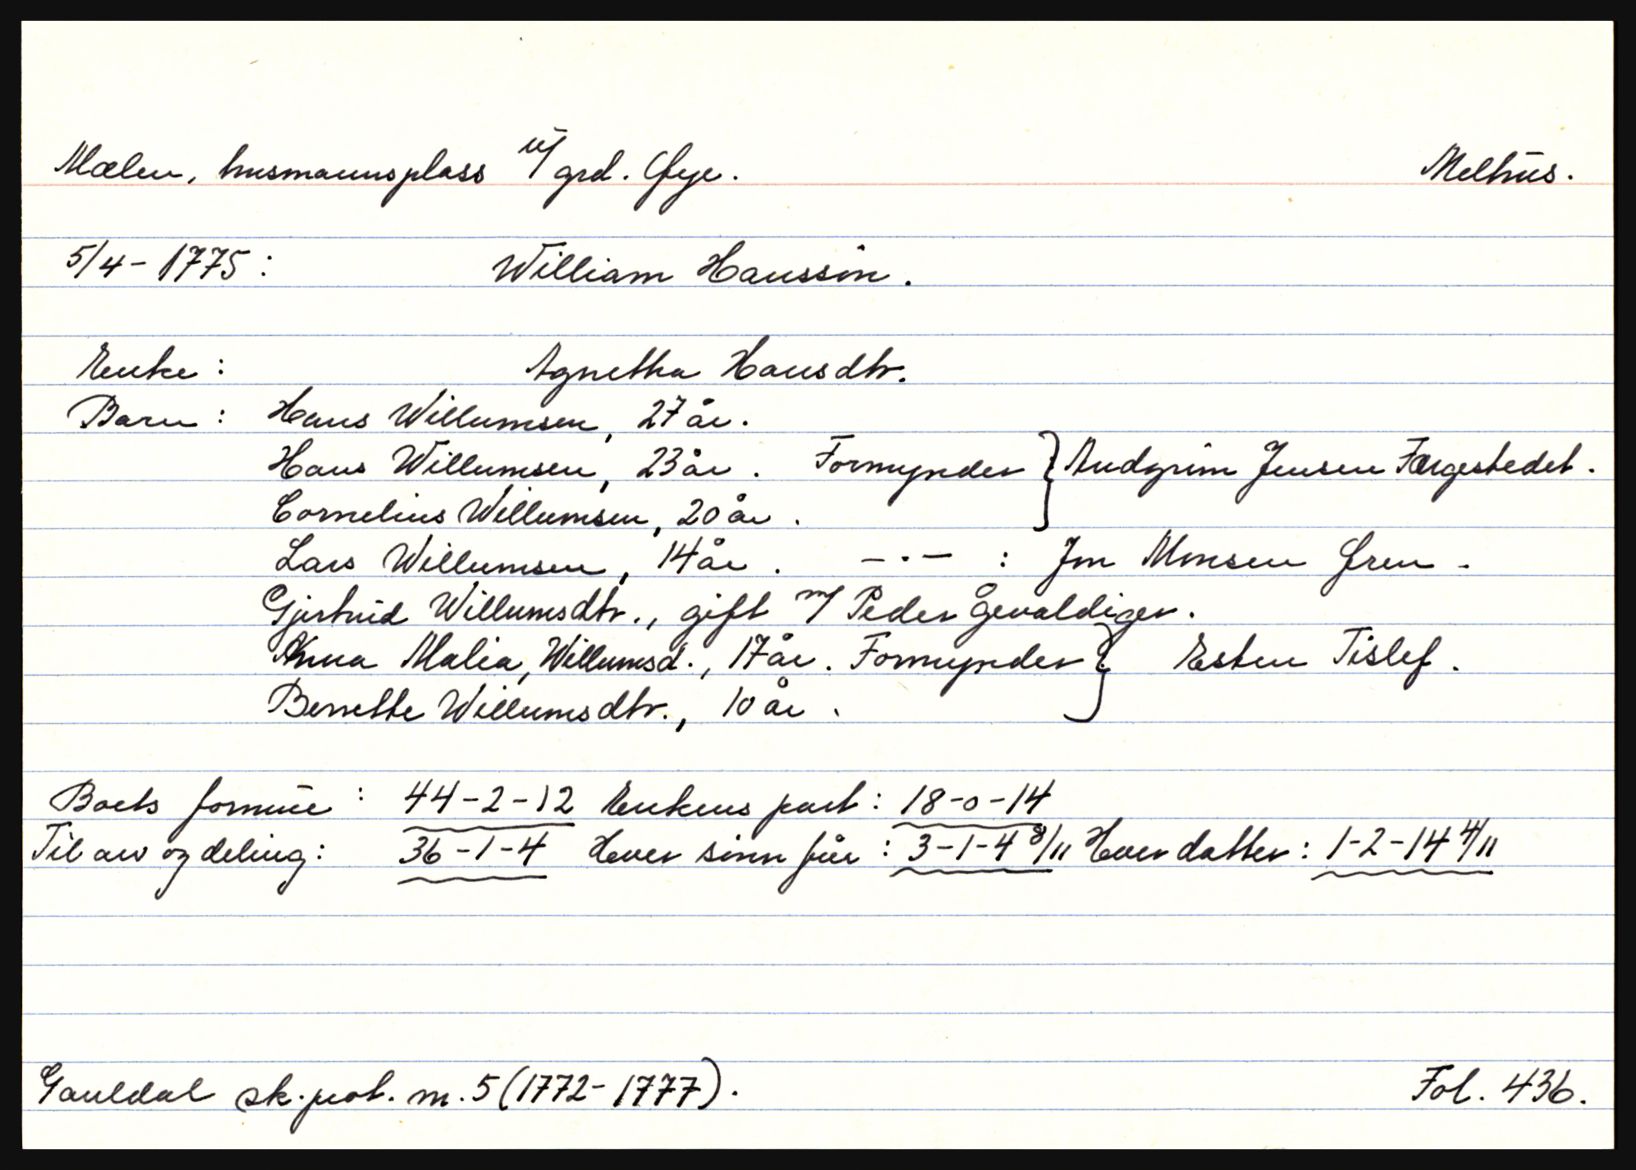 Mælen, husmannsplass u/ grd. Øye. Melhus.
5/4 - 1775: William Hanssøn.
Enke: Agnetha Hansdtr.
Barn: Hans Willumsen, 27 år.
Hans Willumsen, 23 år. Formynder } Audgrim Jensen Færgestedet.
Cornelius Willumsen, 20 år.
Lars Willumsen, 14 år. -·- : Jon Monsen Gren.
Gjertrud Willumsdtr., gift m/ Peder Gevaldiger.
Anna Malia, Willumsd., 17 år. Formynder } Esten Tislef.
Bernette Willumsdtr., 10 år.
Boets formue: 44-2-12 Enkens part: 18-0-14
Til arv og deling: 36-1-4 Hver sønn får: 3-1-4 8/11 Hver datter: 1-2-14 4/11
Gauldal sk.prot. nr. 5 (1772-1777). Fol. 436.